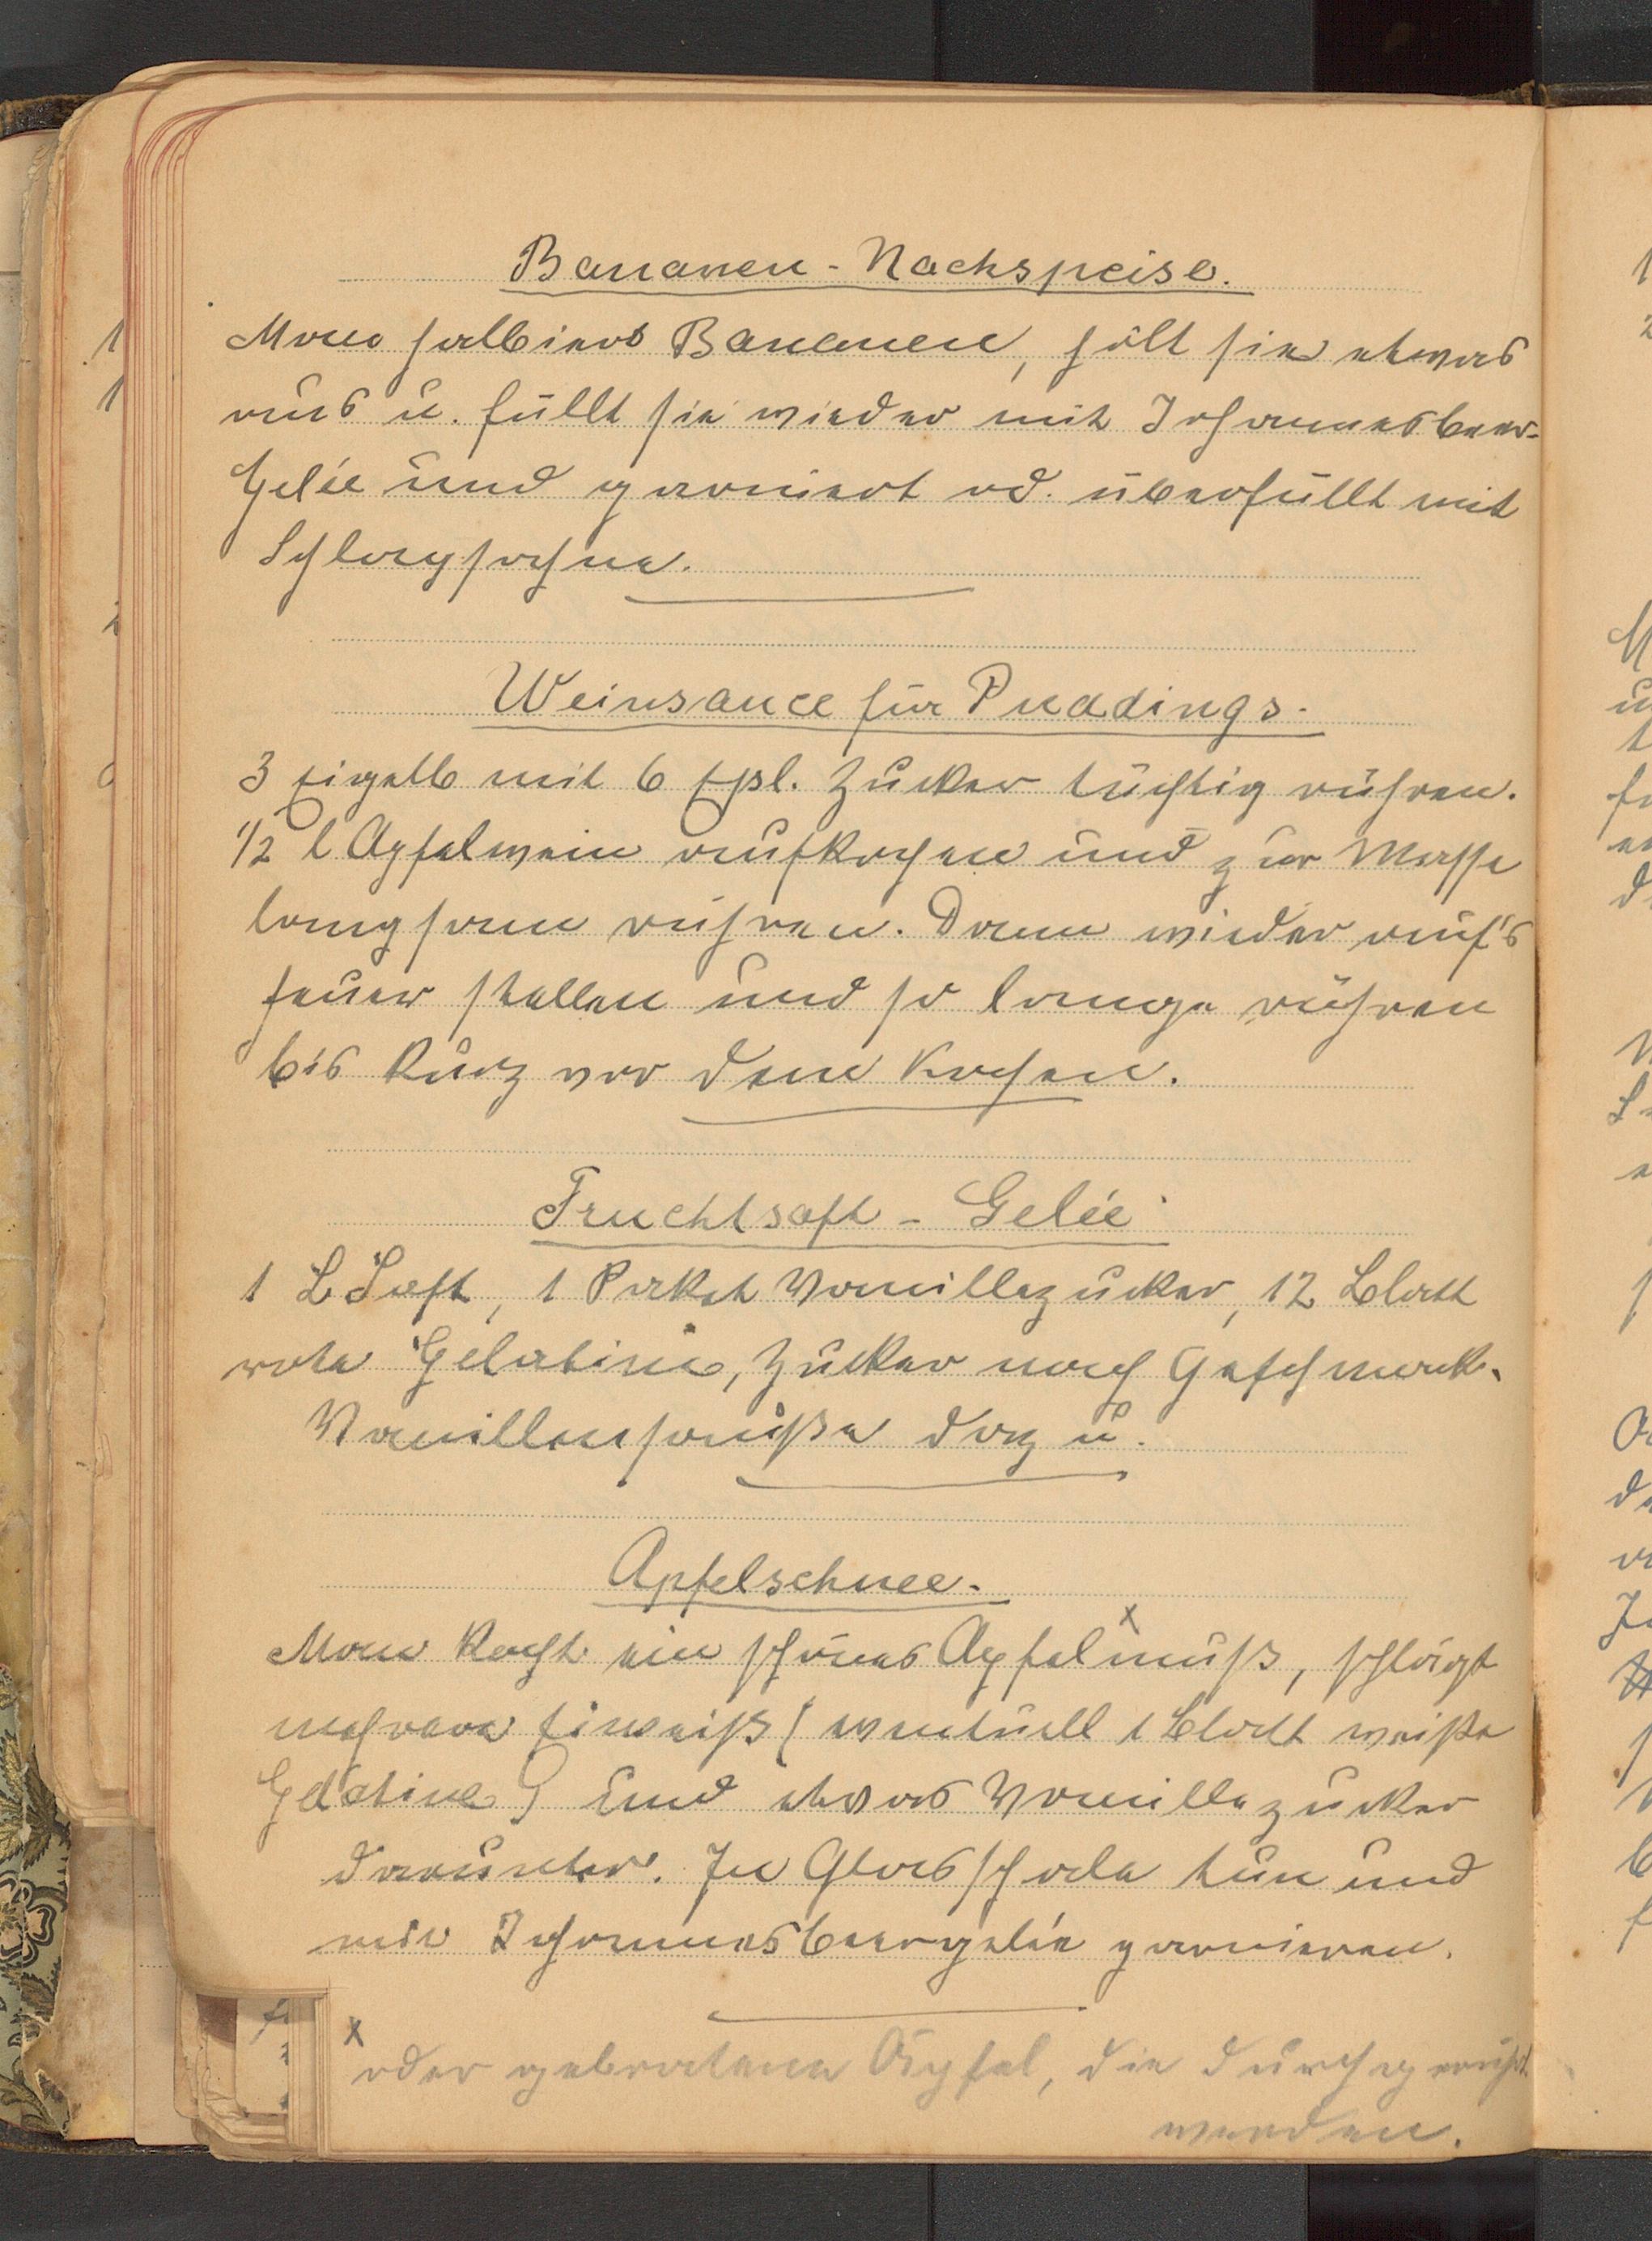 Bananen-Nachspeise.
Man halbiert Bananen, höhlt sie etwas
aus u. füllt sie wieder mit Johannesbeer-
Gelée und garniert od. überfüllt mit
Schlagsahne.
Weinsauce für Puddings.
3 Eigelb mit 6 Eßl. Zucker tüchtig rühren.
1/2 l Apfelwein aufkochen und zur Masse
langsam rühren. Dann wieder auf's
Feuer stellen und so lange rühren
bis kurz vor dem Kochen.
Fruchtsaft-Gelée
1 L Saft, 1 Paket Vanillezucker, 12 Blatt
rote Gelatine, Zucker nach Geschmack.
Vanillensauße dazu.
Apfelschnee.
Man kocht ein schönes Apfelmuß x, schlägt
mehrere Eiweiß (eventuell 1 Blatt weiße
Gelatine) und etwas Vanillezucker
darunter. In Glasschale tun und
mit Johannesbeergelée garnieren.
x oder gebratene Äpfel, die durchgerührt
werden.